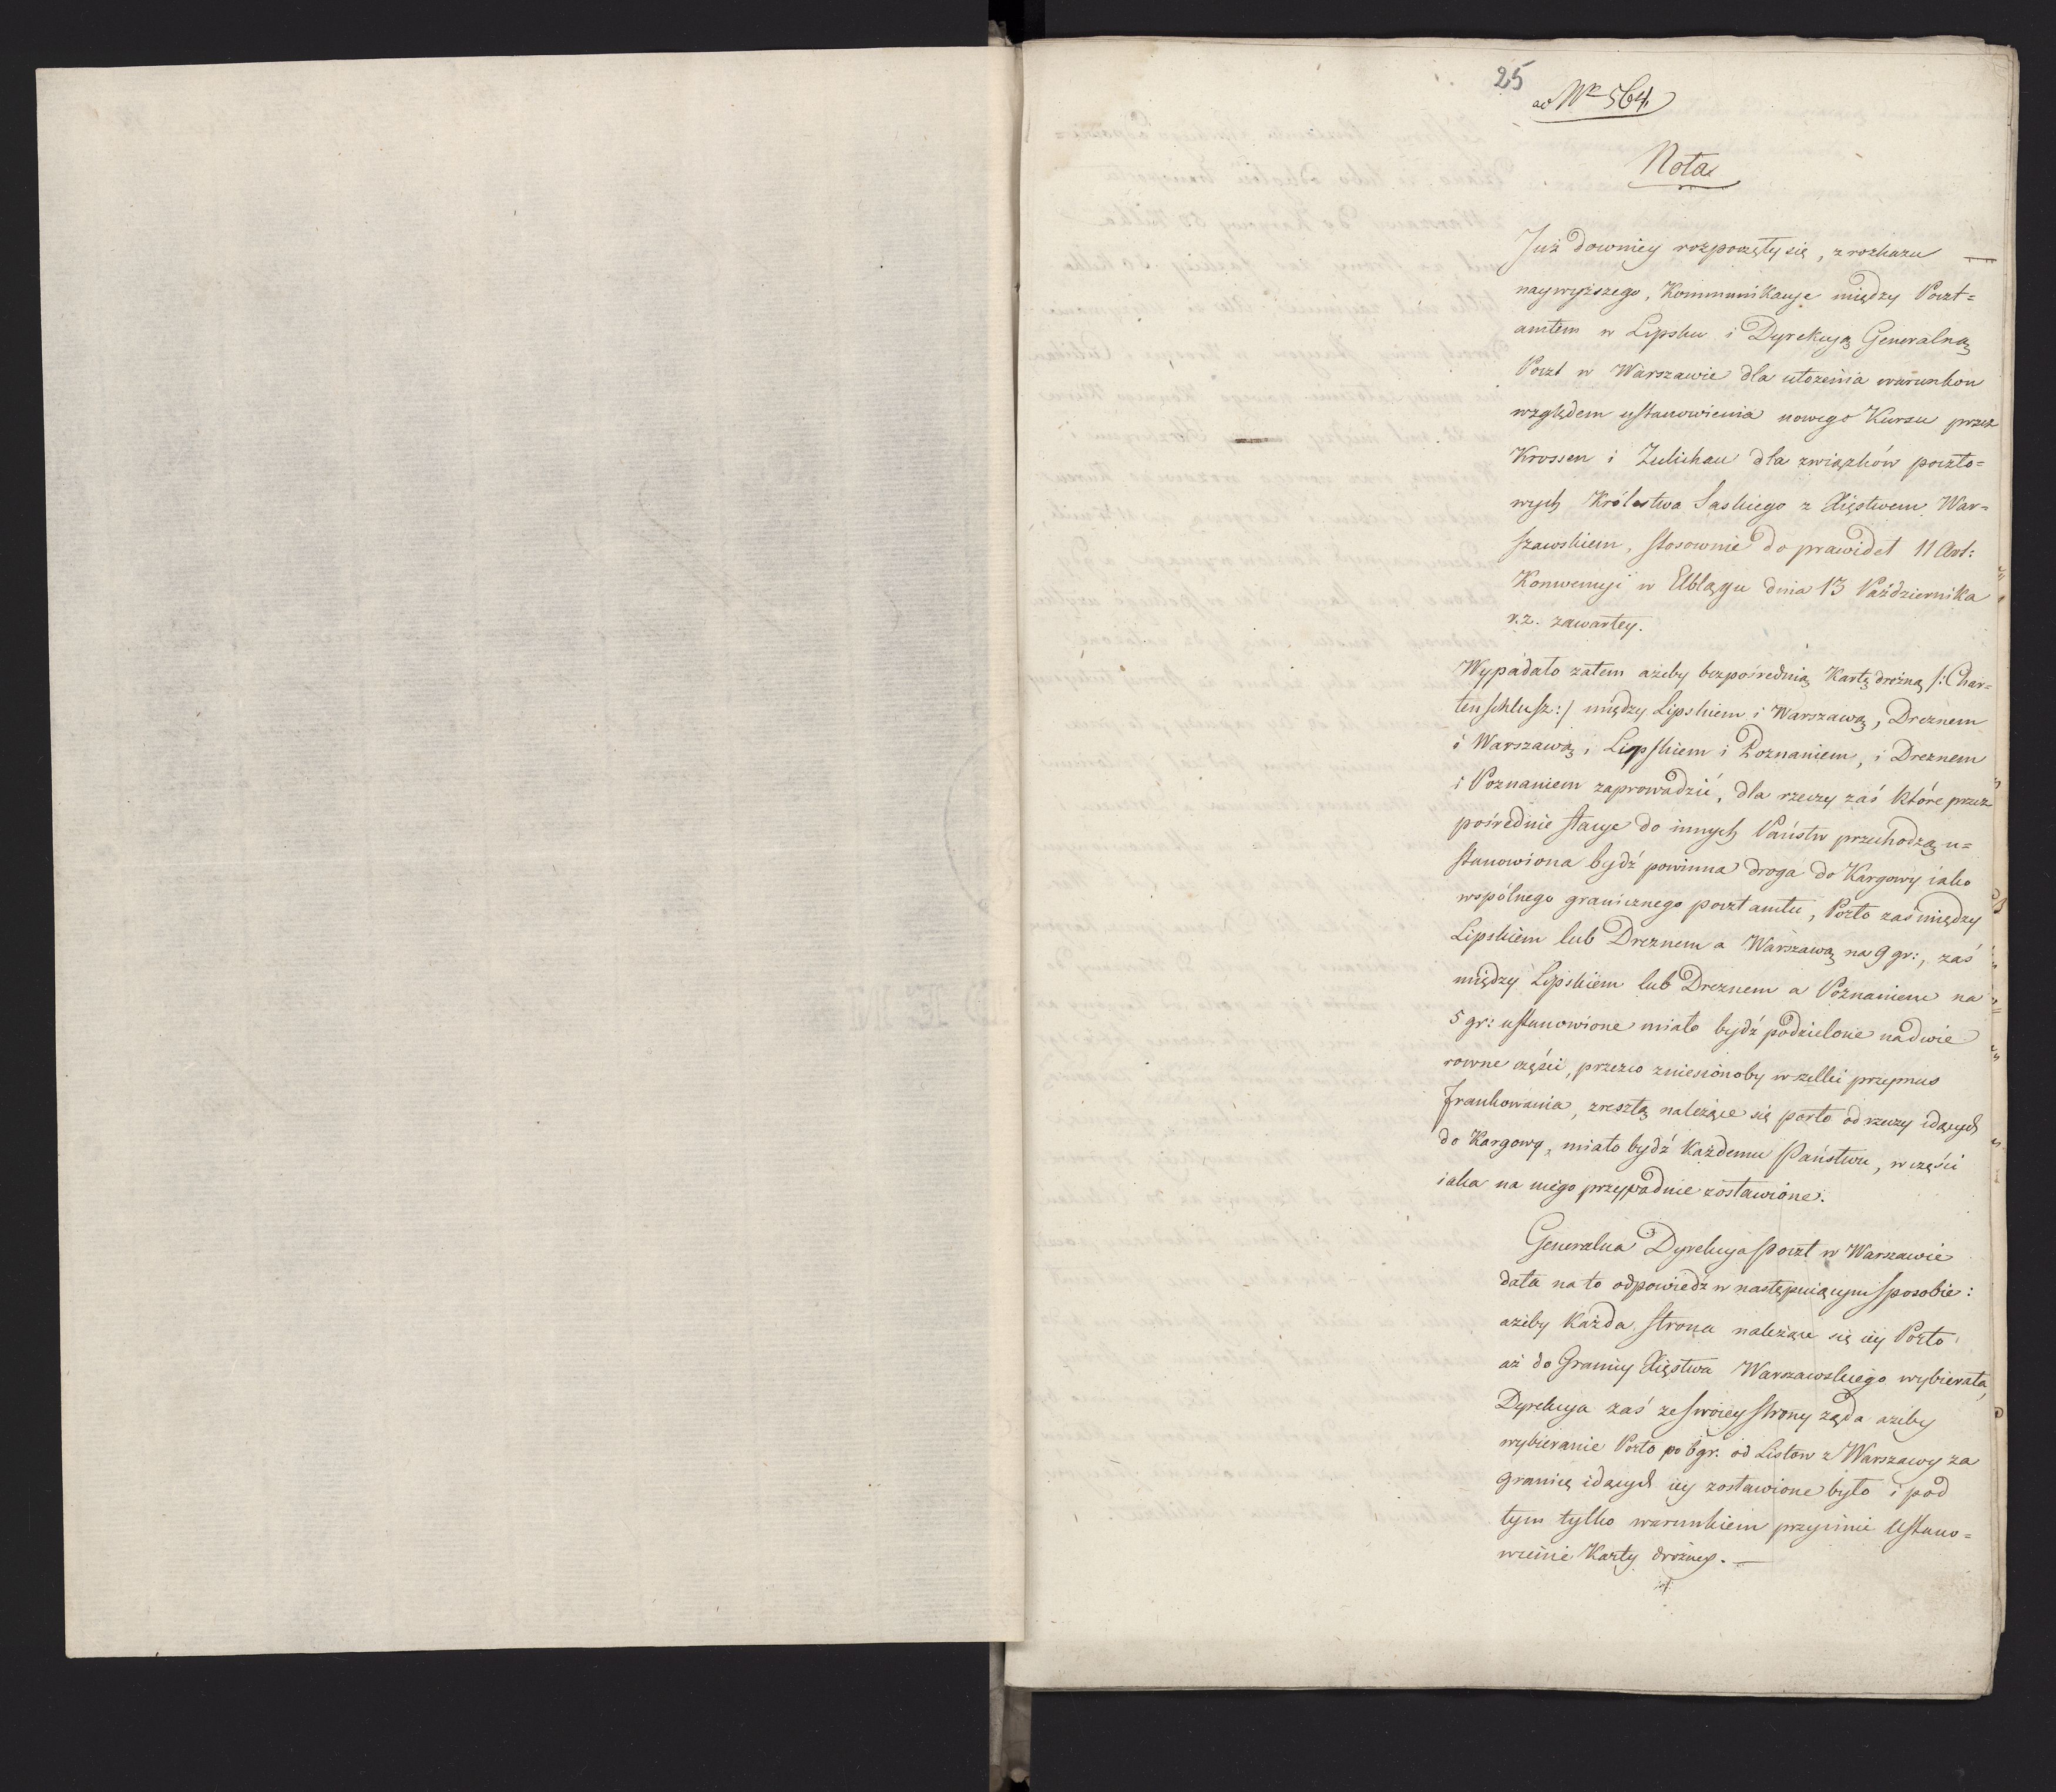 25
ad Nr 564
Nota
Już dawniey rozpoczęły się, z rozkazu
naywyższego, Kommunikacye między Poczt=
amtem w Lipsku i Dyrekcyą Generalną
Poczt w Warszawie dla ułożenia warunkow
względem ustanowienia nowego Kursu przez
Krossen i Zulichau dla związków poczto=
wych Królestwa Saskiego z Xięstwem War=
szawskiem, stosownie do prawideł 11 Art:
Konwencyi w Elblągu dnia 13 Października
r.z. zawartey.
Wypadało zatem ażeby bezpośrednią Kartę drożną /: Char=
tenschlusz :/ między Lipskiem i Warszawą, Dreznem
i Warszawą, Lipskiem i Poznaniem, i Dreznem
i Poznaniem zaprowadzić, dla rzeczy zaś które przez
pośrednie stacye do innych Państw przechodzą u=
stanowiona bydź powinna droga do Kargowy iako
wspólnego granicznego pocztamtu, Porto zaś między
Lipskiem lub Dreznem a Warszawą na 9 gr:, zaś
między Lipskiem lub Dreznem a Poznaniem na
5 gr: ustanowione miało bydź podzielone na dwie
rowne części, przezco zniesionoby wszelki przymus
frankowania, zresztą należące się porto od rzeczy idących
do Kargowy, miało bydź każdemu Państwu, w części
iaka na niego przypadnie zostawione.
Generalna Dyrekcya Poczt w Warszawie
dała na to odpowiedź w następuiącym sposobie:
ażeby każda strona należące się iey Porto
aż do Granicy Xięstwa Warszawskiego wybierała,
Dyrekcya zaś ze swoiey strony żąda ażeby
wybieranie Porto po 6 gr. od Listow z Warszawy za
granicę idących iey zostawione było i pod
tym tylko warunkiem przyimie Ustano=
wienie Karty drożney.